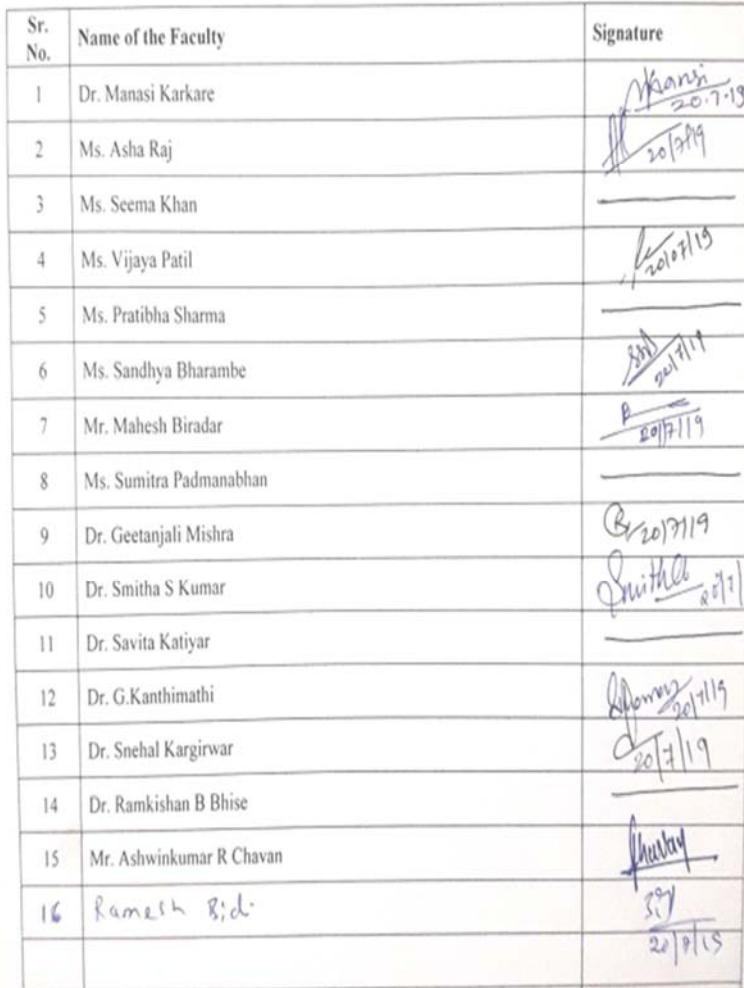 Sr. No. Name of the Faculty Signature
1 Dr. Manasi Karkare Mansi 20.7.19
2 Ms. Asha Raj 20/7/19
3 Ms. Seema Khan
4 Ms. Vijaya Patil 20/07/19
5 Ms. Pratibha Sharma
6 Ms. Sandhya Bharambe 20/7/19
7 Mr. Mahesh Biradar 20/7/19
8 Ms. Sumitra Padmanabhan
9 Dr. Geetanjali Mishra 20/7/19
10 Dr. Smitha S Kumar Smitha 20/7/
11 Dr. Savita Katiyar
12 Dr. G.Kanthimathi 20/7/19
13 Dr. Snehal Kargirwar 20/7/19
14 Dr. Ramkishan B Bhise
15 Mr. Ashwinkumar R Chavan Chavan
16 Ramesh